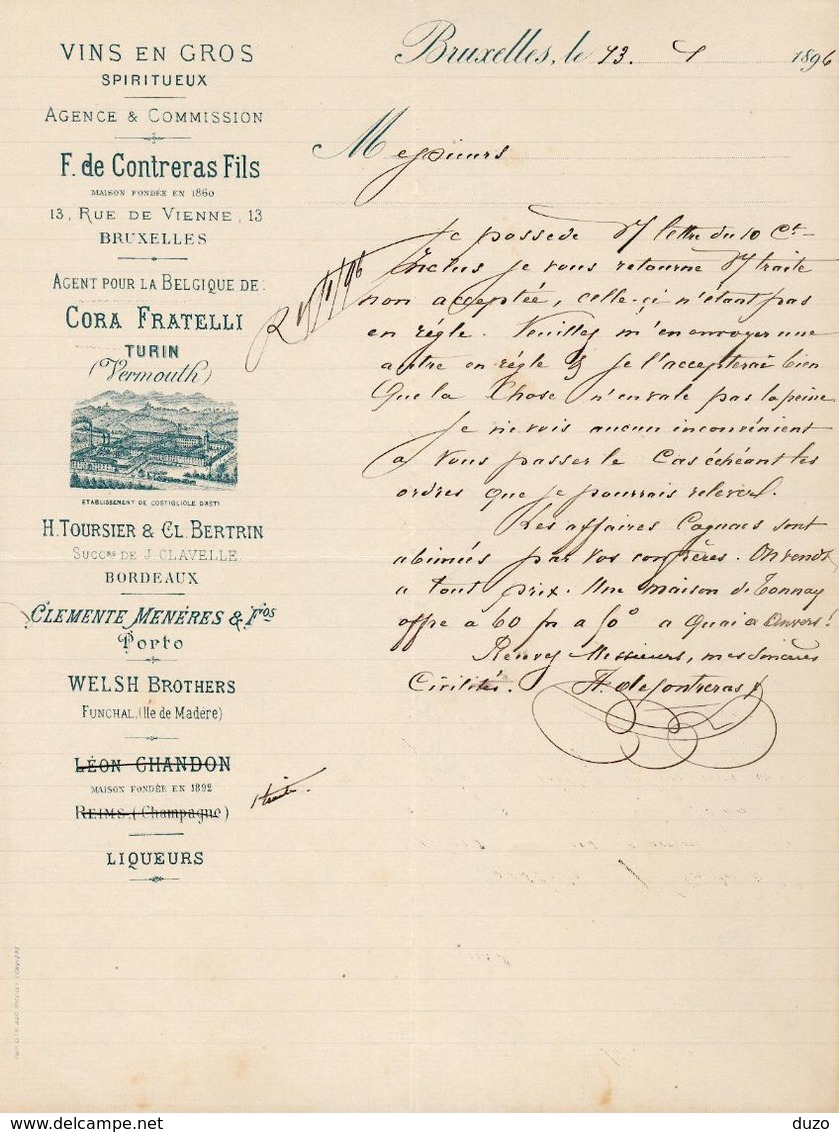 VINS EN GROS
SPIRITUEUX
AGENCE & COMMISSION
F. de Contreras Fils
MAISON FONDÉE EN 1860
13, RUE DE VIENNE, 13
BRUXELLES
AGENT POUR LA BELGIQUE DE:
CORA FRATELLI
TURIN
(Vermouth)
ETABLISSEMENT DE COSTIGLIOLE D'ASTI
H. TOURSIER & CL. BERTRIN
SUCCRS DE J. CLAVELLE
BORDEAUX
CLEMENTE MENÉRES & Fios
Porto
WELSH BROTHERS
FUNCHAL, (Ile de Madère)
LÉON CHANDON
MAISON FONDÉE EN 1892
REIMS. (Champagne)
LIQUEURS
Bruxelles, le 13. 1 1896
Messieurs
Je possède V/ lettre du 10 Ct
Inclus je vous retourne V/ traite
non acceptée, celle-çi n'étant pas
en règle. Veuillez m'en envoyer une
autre en règle & je l'accepterai bien
que la chose n'en vale pas la peine
Je ne vois aucun inconvénient
a vous passer le cas échéant les
ordres que je pourrais relever.
Les affaires Cognacs sont
abimées par vos confrères. On vend
a tout prix. Une maison de Tonnay
offre à 60 fr a 50° a Quai a Anvers!
Recevez Messieurs, mes sincères
Civilités. F. de Contreras f
1 traite.
duzo